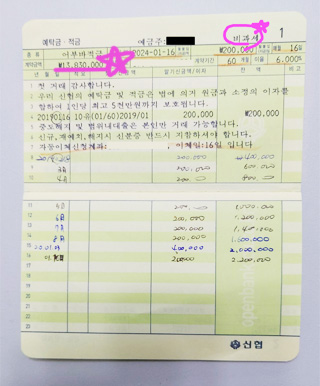 예탁금·적금 예금주: 비과세 1
종류 어부바적금 2024-01-16 ₩200,000 매월 16
계약금액 ₩13,830,000 계약기간 60 개월 이율 6.000%
년월일
첫 거래 감사합니다.
우리 신협의 예탁금 및 적금은 법에 의거 원금과 소정의 이자를
합하여 1인당 최고 5천만원까지 보호됩니다.
20190116 10유(01/60)2019/01 200,000 ₩200,000
중도해지 및 범위내대출은 본인만 거래 가능합니다.
신규,재예치,해지시 신분증 반드시 지참하셔야 합니다.
자동이체신청계좌: , 이체일:16일 입니다
200,000 400,000
3월 200,000 600,000
4월 200,000
11 5월 200,000
12 6월 200,000 1,200,000
13 7월 200,000 1,400,000
14 8월 200,000 1,600,000
15 400,000 2,000,000
16 200,000 2,200,000
17
18
19
20
신협